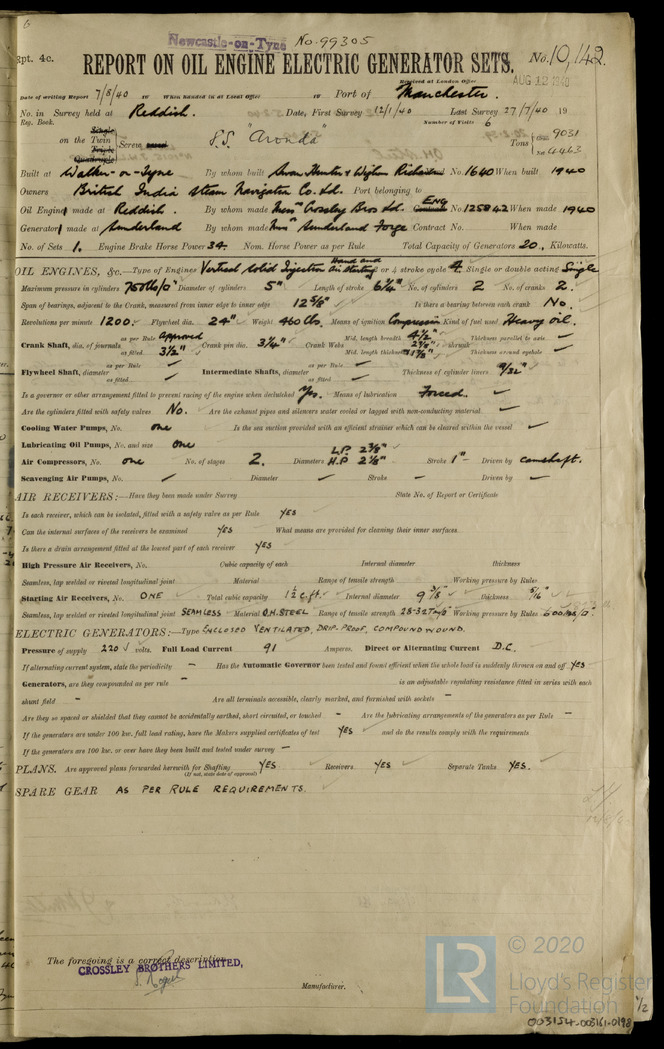 Newcastle-on-Tyne No. 99305
Rpt. 4c. REPORT ON OIL ENGINE ELECTRIC GENERATOR SETS. No. 10,142
Received at London Office AUG 12 1940
Date of writing Report 7/8/40 When handed in at Local Office Port of Manchester.
No. in Reg. Book. Survey held at Reddish. Date, First Survey 12/1/40 Last Survey 27/7/40 19
Number of Visits 6
on the Single Twin Triple Quadruple Screw S.S. "Aronda" Tons Gross 9031 Net 4463
Built at Walker-on-Tyne By whom built Swan Hunter & Wigham Richardson No. 1640 When built 1940
Owners British India Steam Navigation Co. Ld. Port belonging to
Oil Engine made at Reddish. By whom made Messrs Crossley Bros Ld. ENG Contract No. 125842 When made 1940
Generator made at Sunderland By whom made Messrs Sunderland Forge Contract No. When made
No. of Sets 1. Engine Brake Horse Power 34. Nom. Horse Power as per Rule Total Capacity of Generators 20. Kilowatts.
OIL ENGINES, &c.—Type of Engines Vertical Solid Injection Hand and Air starting or 4 stroke cycle 4. Single or double acting Single
Maximum pressure in cylinders 750 lbs/□" Diameter of cylinders 5" Length of stroke 6¼" No. of cylinders 2 No. of cranks 2.
Span of bearings, adjacent to the Crank, measured from inner edge to inner edge 12⅝" Is there a bearing between each crank No.
Revolutions per minute 1200. Flywheel dia. 24" Weight 460 lbs. Means of ignition Compression Kind of fuel used Heavy oil.
Crank Shaft, dia. of journals as per Rule Approved as fitted 3½" Crank pin dia. 3¼" Crank Webs Mid. length breadth 4½" Mid. length thickness 1⅞" Thickness parallel to axis Thickness around eyehole
Flywheel Shaft, diameter as per Rule as fitted Intermediate Shafts, diameter as per Rule as fitted Thickness of cylinder liners 9/32"
Is a governor or other arrangement fitted to prevent racing of the engine when declutched Yes. Means of lubrication Forced.
Are the cylinders fitted with safety valves No. Are the exhaust pipes and silencers water cooled or lagged with non-conducting material
Cooling Water Pumps, No. one Is the sea suction provided with an efficient strainer which can be cleared within the vessel
Lubricating Oil Pumps, No. and size one
Air Compressors, No. one No. of stages 2. Diameters L.P. 2⅜" H.P. 2⅛" Stroke 1" Driven by camshaft.
Scavenging Air Pumps, No. Diameter Stroke Driven by
AIR RECEIVERS:—Have they been made under Survey State No. of Report or Certificate
Is each receiver, which can be isolated, fitted with a safety valve as per Rule YES
Can the internal surfaces of the receivers be examined YES What means are provided for cleaning their inner surfaces
Is there a drain arrangement fitted at the lowest part of each receiver YES
High Pressure Air Receivers, No. Cubic capacity of each Internal diameter thickness
Seamless, lap welded or riveted longitudinal joint Material Range of tensile strength Working pressure by Rules
Starting Air Receivers, No. ONE Total cubic capacity 1½ c.ft. Internal diameter 9⅜" thickness 5/16"
Seamless, lap welded or riveted longitudinal joint SEAMLESS Material O.H. STEEL Range of tensile strength 28-32 T/□" Working pressure by Rules 600 lbs/□".
ELECTRIC GENERATORS:—Type ENCLOSED VENTILATED, DRIP-PROOF, COMPOUND WOUND.
Pressure of supply 220 volts. Full Load Current 91 Amperes. Direct or Alternating Current D.C.
If alternating current system, state the periodicity - Has the Automatic Governor been tested and found efficient when the whole load is suddenly thrown on and off YES
Generators, are they compounded as per rule - is an adjustable regulating resistance fitted in series with each
shunt field - Are all terminals accessible, clearly marked, and furnished with sockets -
Are they so spaced or shielded that they cannot be accidentally earthed, short circuited, or touched - Are the lubricating arrangements of the generators as per Rule -
If the generators are under 100 kw. full load rating, have the Makers supplied certificates of test YES and do the results comply with the requirements
If the generators are 100 kw. or over have they been built and tested under survey -
PLANS. Are approved plans forwarded herewith for Shafting YES Receivers YES Separate Tanks YES.
(If not, state date of approval)
SPARE GEAR AS PER RULE REQUIREMENTS.
The foregoing is a correct description
CROSSLEY BROTHERS LIMITED,
Manufacturer.
LR © 2020
Lloyd's Register
Foundation
003154-003161-0198 1/2